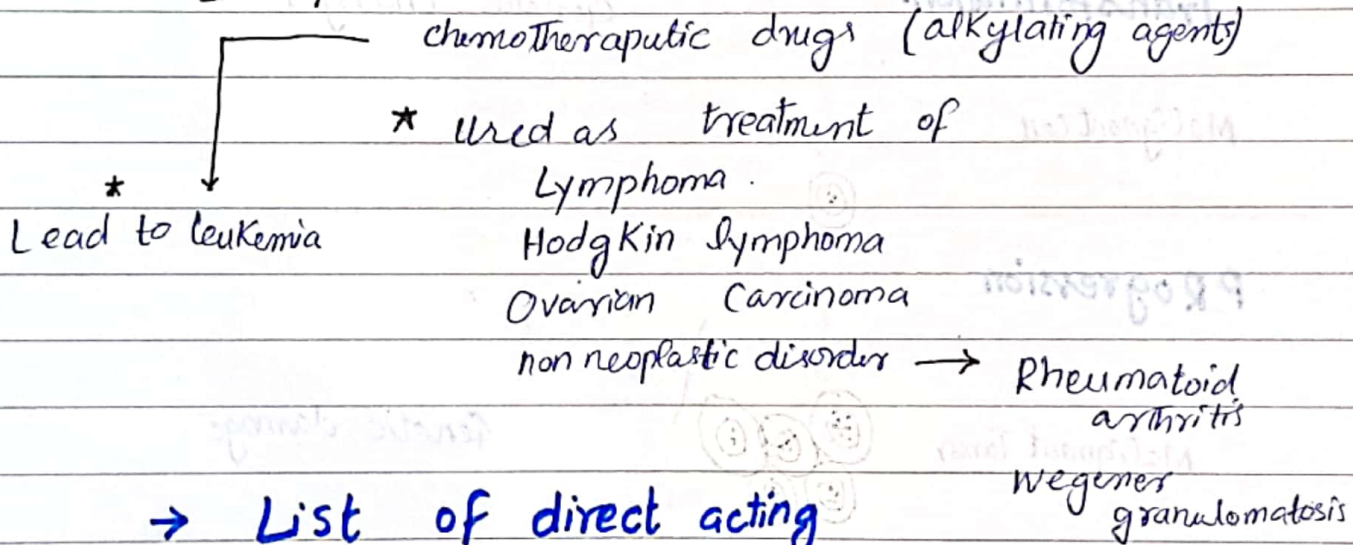 chemotheraputic drugs (alkylating agents)
* used as treatment of
Lymphoma.
* Lead to leukemia
Hodgkin lymphoma
Ovarian Carcinoma
non neoplastic disorder → Rheumatoid
arthritis
Wegener
granulomatosis
→ List of direct acting